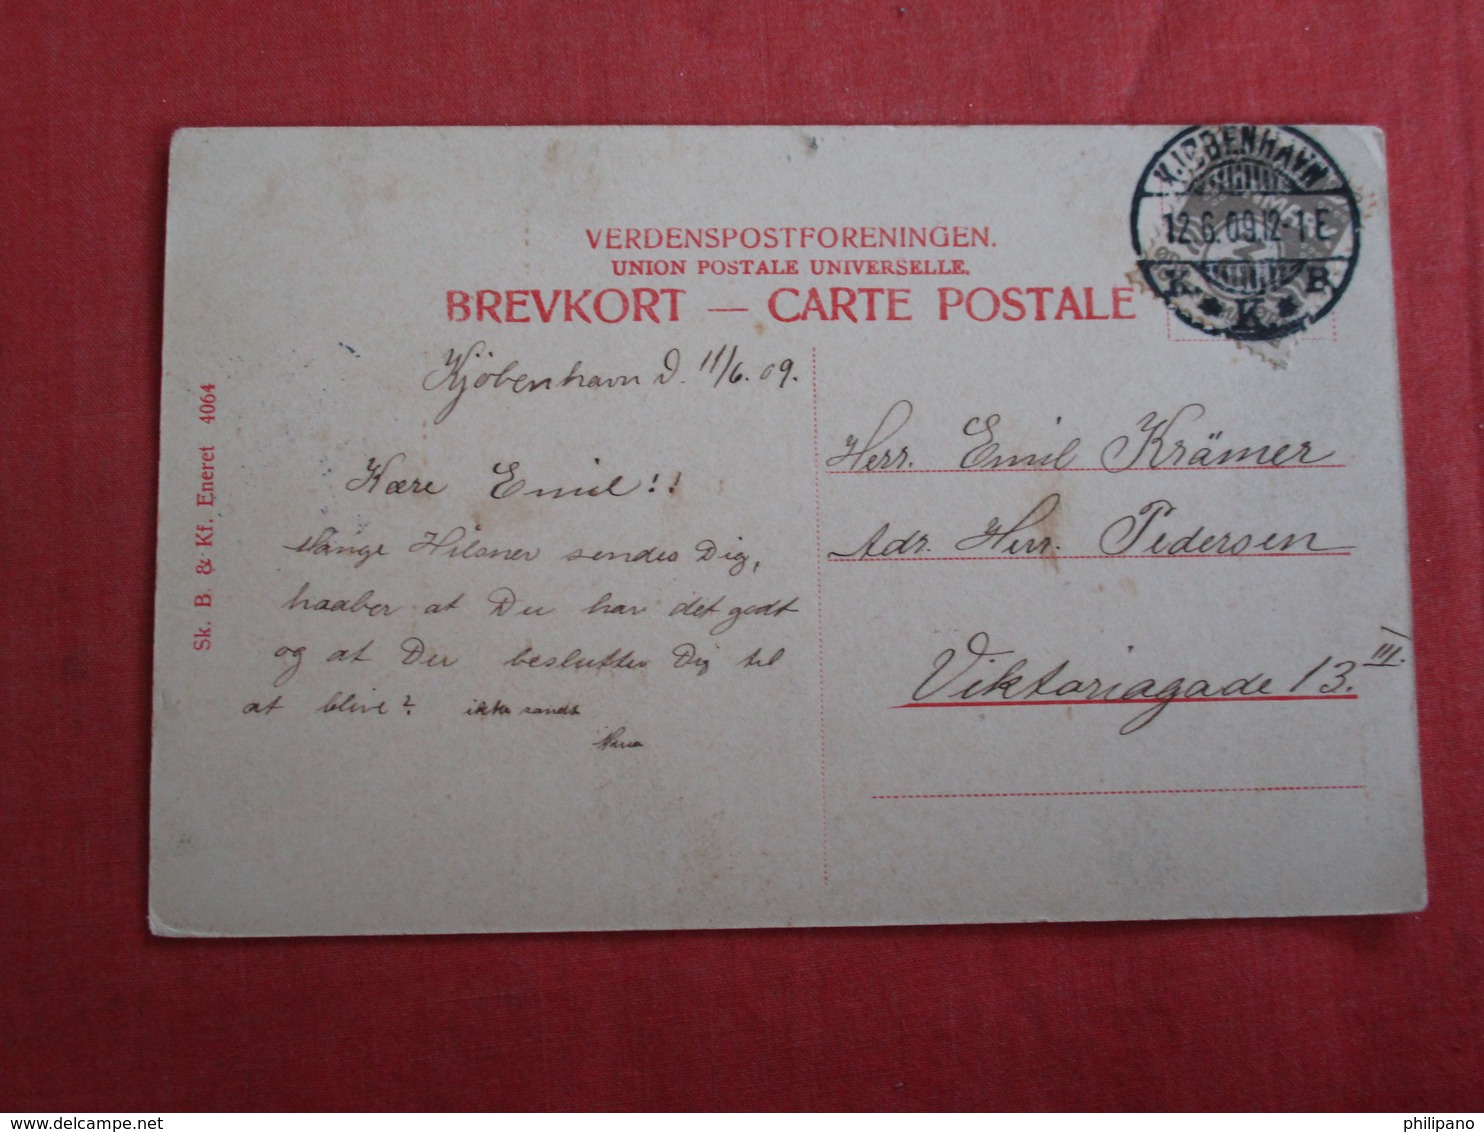 VERDENSPOSTFORENINGEN.
UNION POSTALE UNIVERSELLE.
BREVKORT — CARTE POSTALE
KJØBENHAVN
12.6.09.12-1 E
K. K. B
Kjöbenhavn D. 11/6. 09.
Kære Emil!!
Mange Hilsner sendes Dig,
haaber at Du har det godt
og at Du beslutter Dig til
at blive? ikke sandt
Herr. Emil Krämer
Adr. Herr. Pedersen
Viktoriagade 13. III.
Sk. B. & Kf. Eneret 4064
delcampe.net
philipano